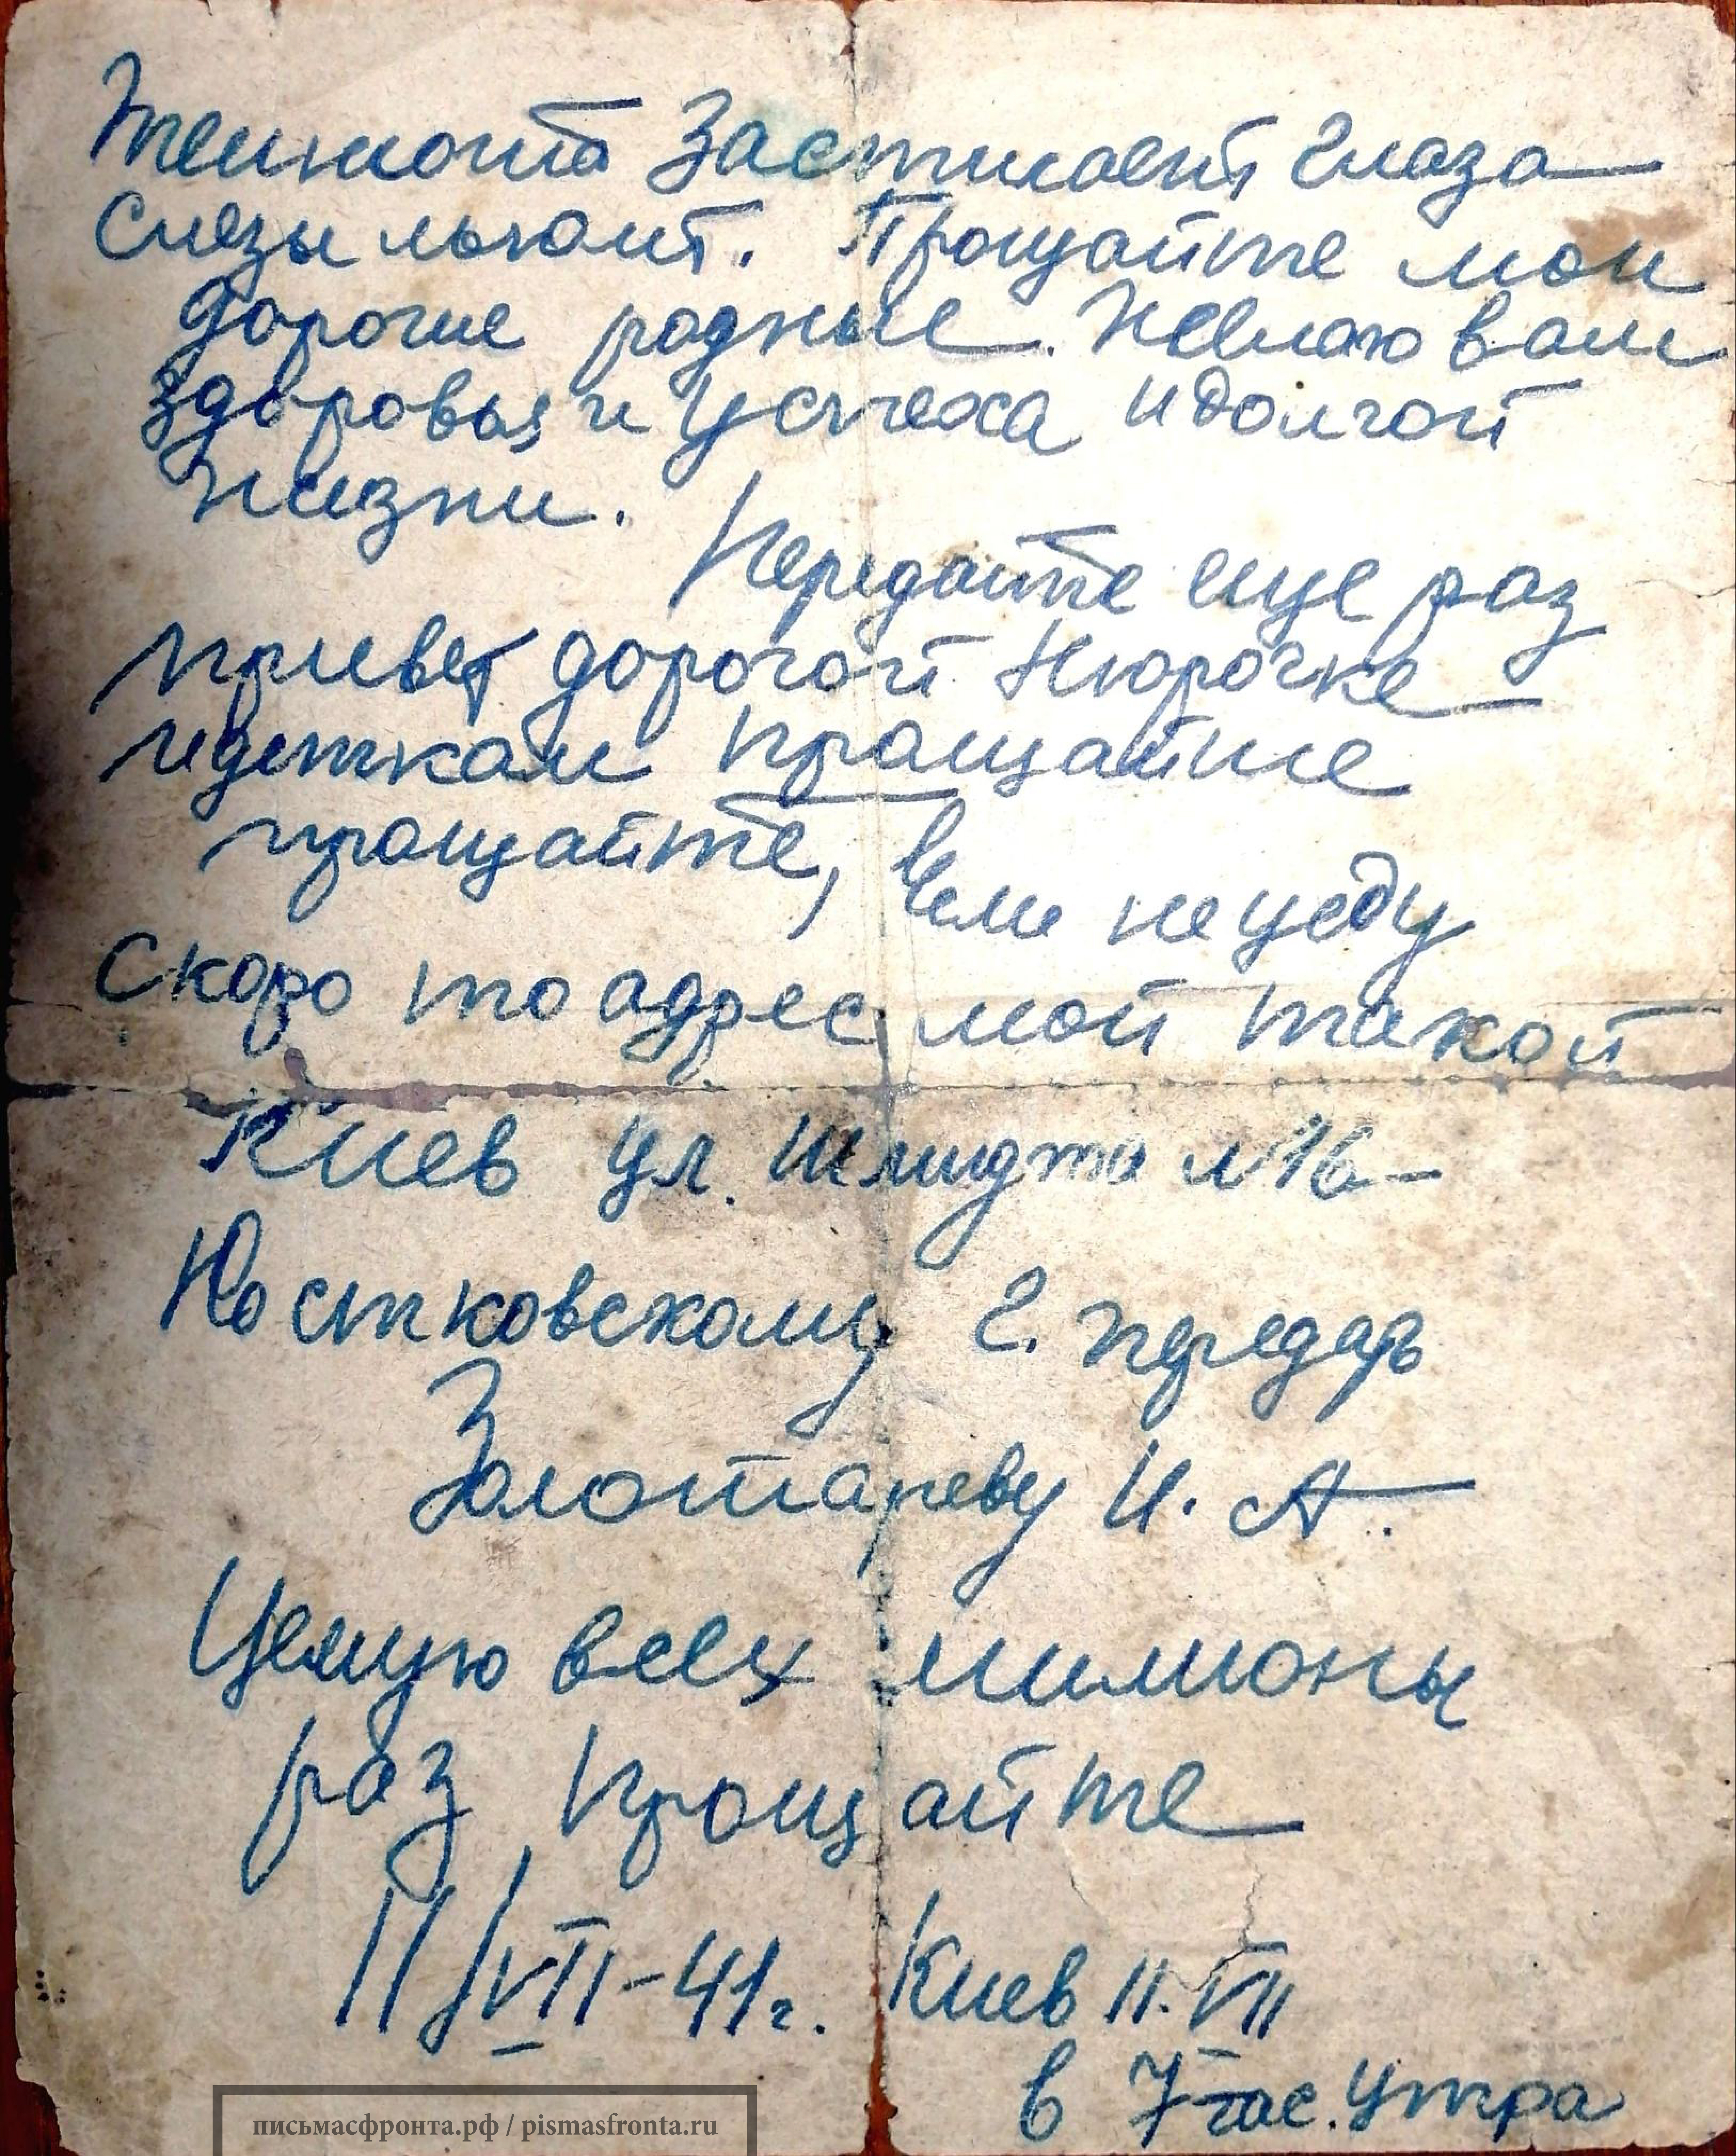 Темнота застилает глаза
слезы льют. Прощайте мои
дорогие родные. Желаю вам
здоровья и успеха и долгой
жизни.
Передайте еще раз
привет дорогой Нюрочке
и деткам прощайте
прощайте, если не уеду
скоро то адрес мой такой
Киев ул. Шмидта №16
Костковскому г. передать
Золотареву И. А.
Целую всех милионы
раз прощайте
11/VII-41г. Киев 11.VII
в 7 час. утра
письмасфронта.рф / pismasfronta.ru